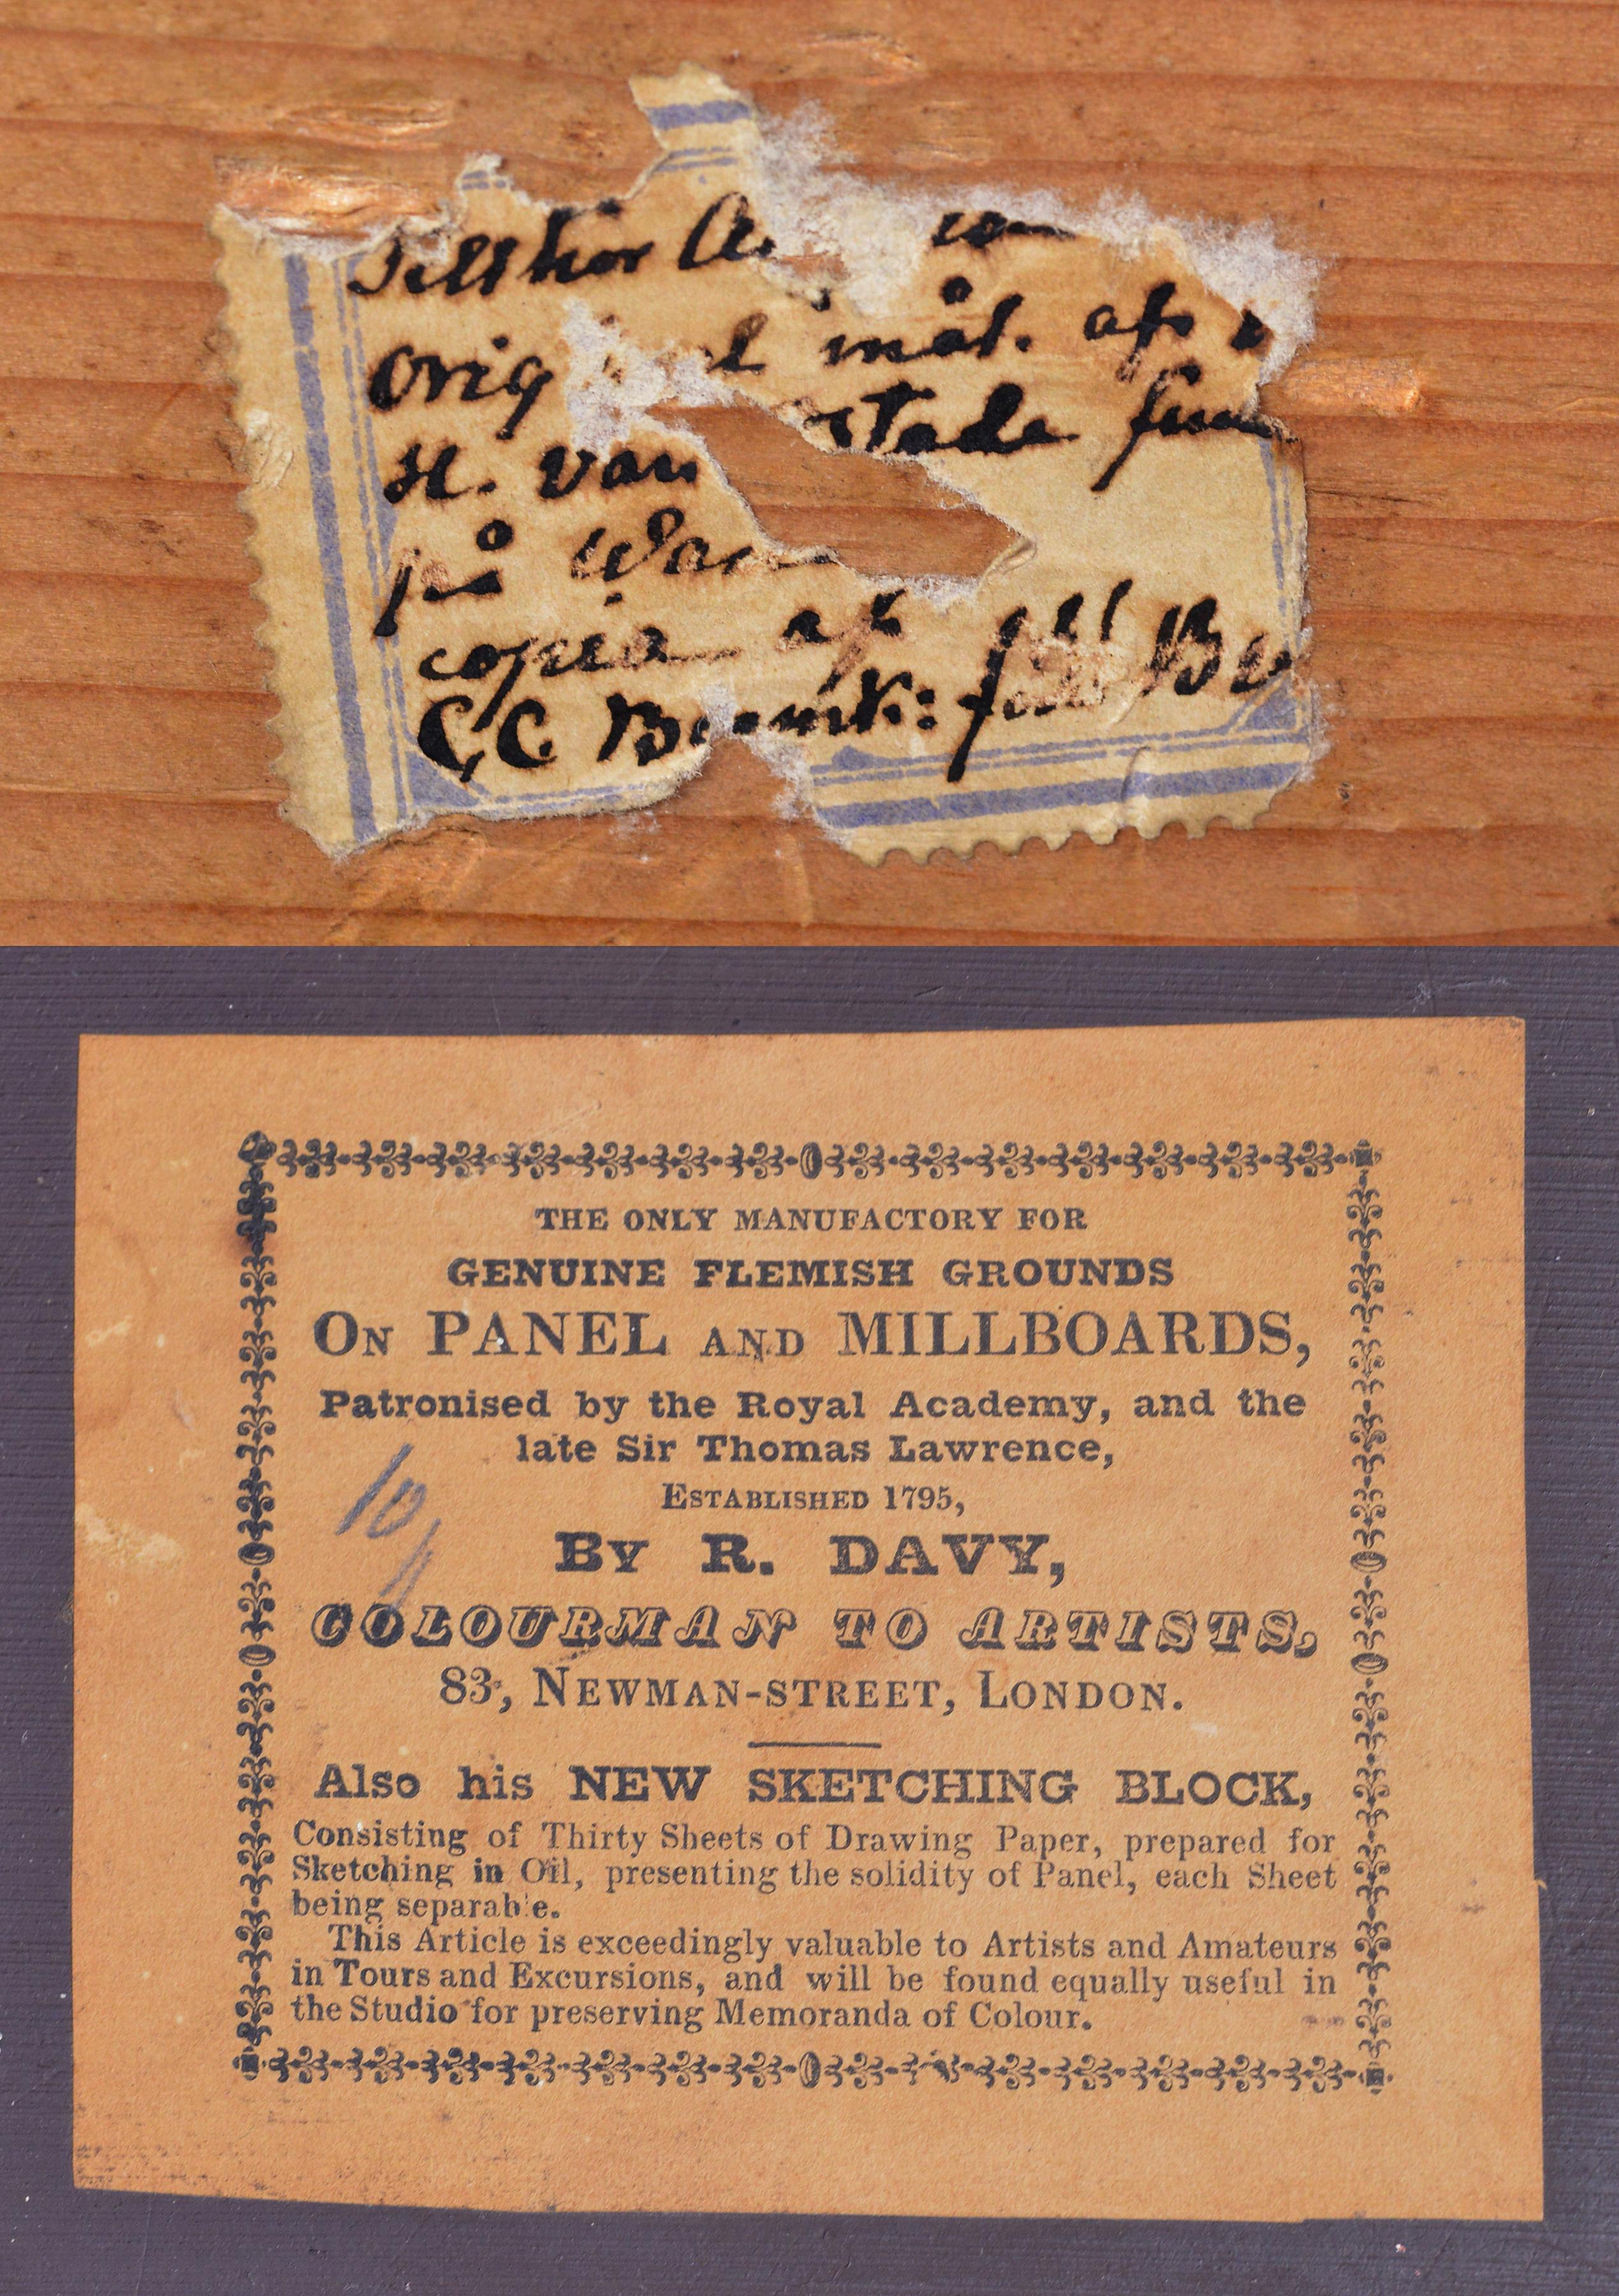 Tillhör A.
Orig l mål. af
H. van stade finn
på Wan
copia af
C. C. B
THE ONLY MANUFACTORY FOR
GENUINE FLEMISH GROUNDS
ON PANEL AND MILLBOARDS,
Patronised by the Royal Academy, and the
late Sir Thomas Lawrence,
ESTABLISHED 1795,
BY R. DAVY,
COLOURMAN TO ARTISTS,
83, NEWMAN-STREET, LONDON.
10
Also his NEW SKETCHING BLOCK,
Consisting of Thirty Sheets of Drawing Paper, prepared for
Sketching in Oil, presenting the solidity of Panel, each Sheet
being separable.
This Article is exceedingly valuable to Artists and Amateurs
in Tours and Excursions, and will be found equally useful in
the Studio for preserving Memoranda of Colour.